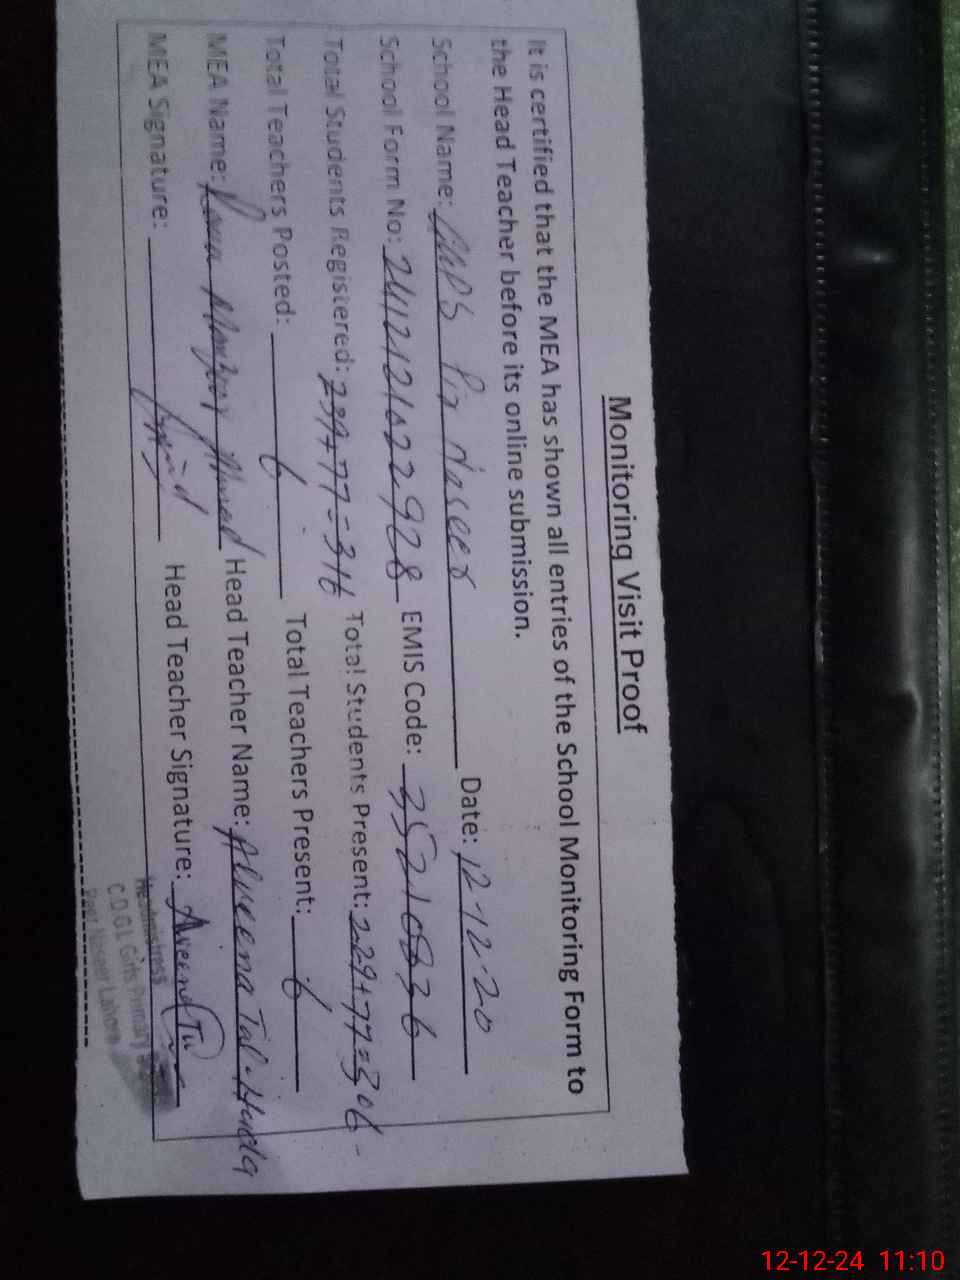 Monitoring Visit Proof
It is certified that the MEA has shown all entries of the School Monitoring Form to
the Head Teacher before its online submission.
School Name: Pir Naseer Date: 12-12-20
School Form No: EMIS Code: 35210836
Total Students Registered: 239+77=316 Total Students Present: 229+77=306
Total Teachers Posted: 6 Total Teachers Present: 6
MEA Name: Head Teacher Name: Tul-Huda
MEA Signature: Head Teacher Signature:
Headmistress
C.D.G.L Girls Primary
Peer Naseer Lahore
12-12-24 11:10